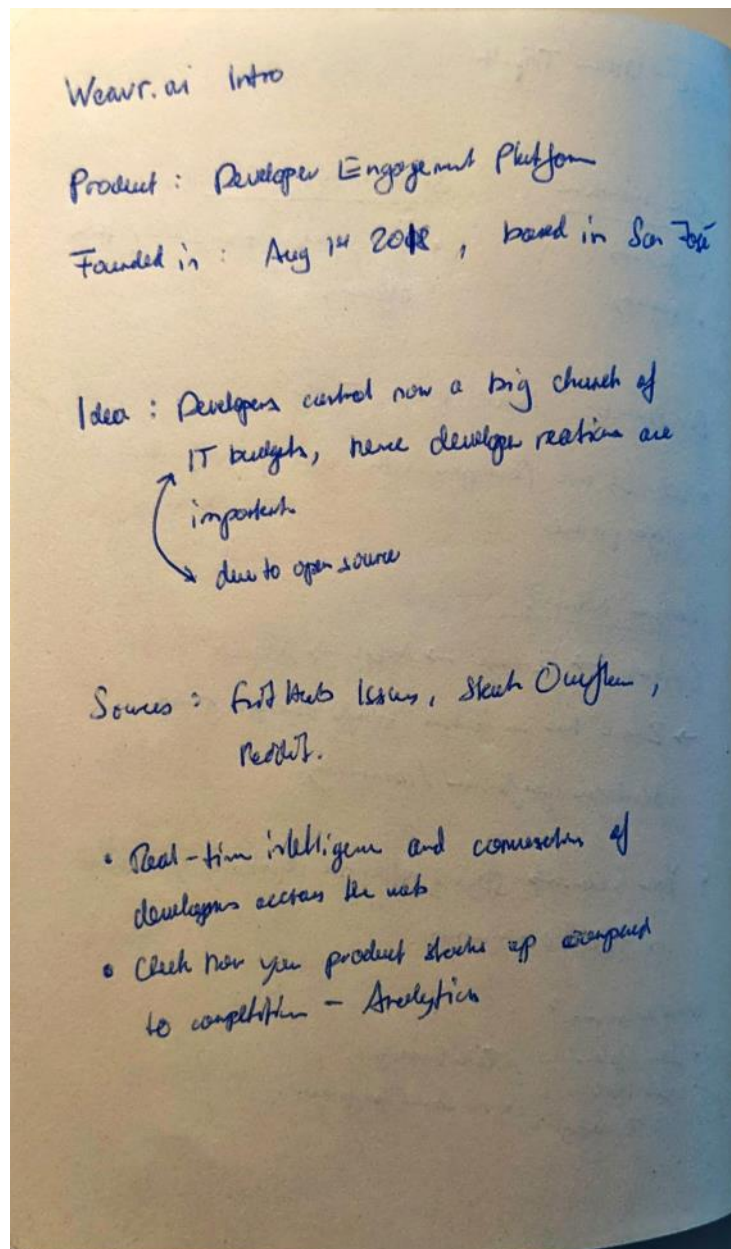 Weavr.ai Intro
Product : Developer Engagement Platform
Founded in : Aug 1st 2018 , based in San José
Idea : Developers control now a big chunch of
IT budgets, hence developer reations are
important
due to open source
Sources : GitHub Issues, Stack Overflow ,
Reddit.
• Real-time intelligence and conversations of
developers accross the web
• Check how your product stacks up compared
to competition - Analytics